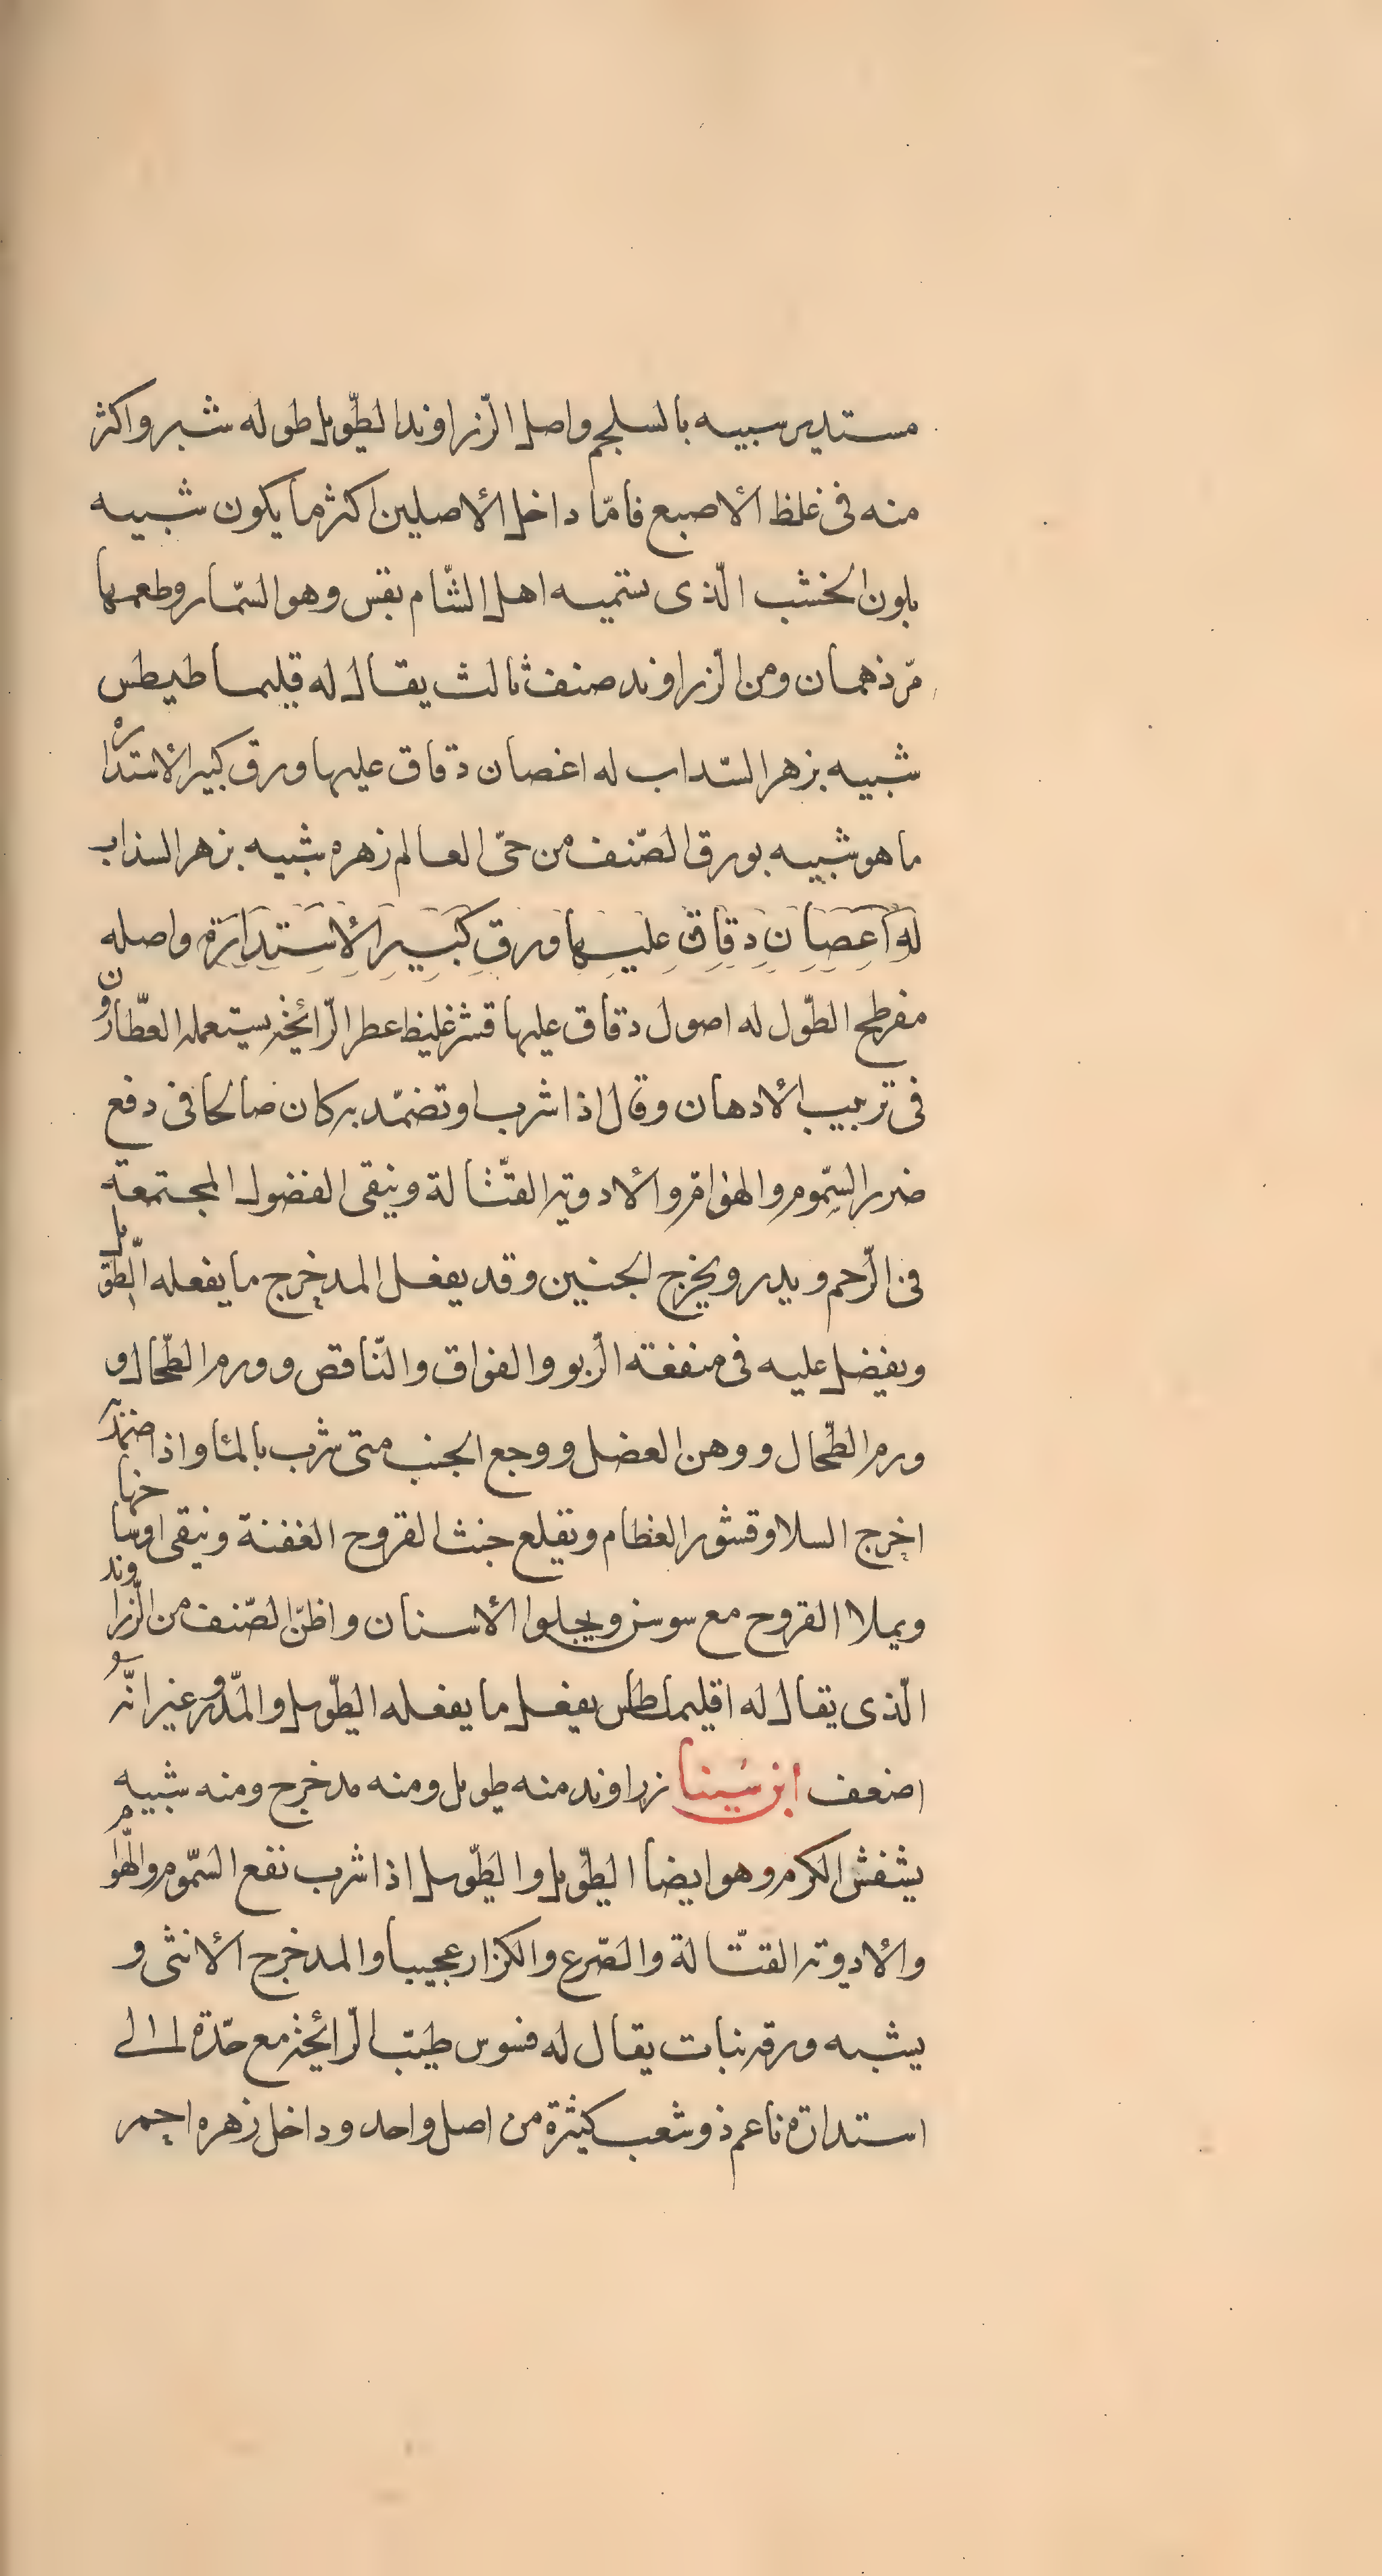 مستدير سبيه بالسلجم واصل الزّراوند الطّويل طوله شبر واكثر
منه فى غلظ الأصبع فامّا داخل الأصلين اكثر ما يكون شبيه
بلون الخشب الّذى ستميه اهل الشّام بقس وهو السّمار وطعمها
مّر ذهمان ومن الزّراوند صنف ثالث يقال له قليما طيطس
شبيه بزهر السّداب له اغصان دقاق عليها ورق كبير الأستدارة
ما هو شبيه بورق الصّنف من حىّ العالم زهره شبيه بزهر السذاب
له اغصان دقاق عليها ورق كبير الأستدارة واصله
مفرطح الطّول له اصول دقاق عليها قشر غليظ عطر الرّائحة يستعمله العطّارون
فى تربيب الأدهان وقال اذا شرب او تضمّد به كان صالحا فى دفع
ضرر السّموم والهوامّ والأدوية القتّالة وينقى الفضول المجتمعة
فى الرّحم ويدر ويخرج الجنين وقد يفعل المدحرج ما يفعله الطّويل
ويفضل عليه فى منفعته الرّبو والفواق والنّاقص وورم الطّحال و
ورم الطّحال ووهن العضل ووجع الجنب متى شرب بالماء واذا ضمّد
اخرج السلا وقشور العظام ويقلع خبث القروح العفنة وينقى اوساخها
ويملا القروح مع سوسن ويجلوا الأسنان واظنّ الصّنف من الزّراوند
الّذى يقال له اقليماطلس يفعل ما يفعله الطّويل والمّدور غير انّه
اضعف ابن سينا زراوند منه طويل ومنه مدحرج ومنه شبيه
بشفش الكرم وهو ايضا الطّويل والطّويل اذا شرب نفع السّموم والهّوام
والأدوية القتّالة والصّرع والكزاز عجيبا والمدحرج الأنثى و
يشبه ورقه نبات يقال له فسوس طيّب الرّائحة مع حّدة لم الى
استدارة ناعم ذو شعب كثيرة من اصل واحد وداخل زهره احمر